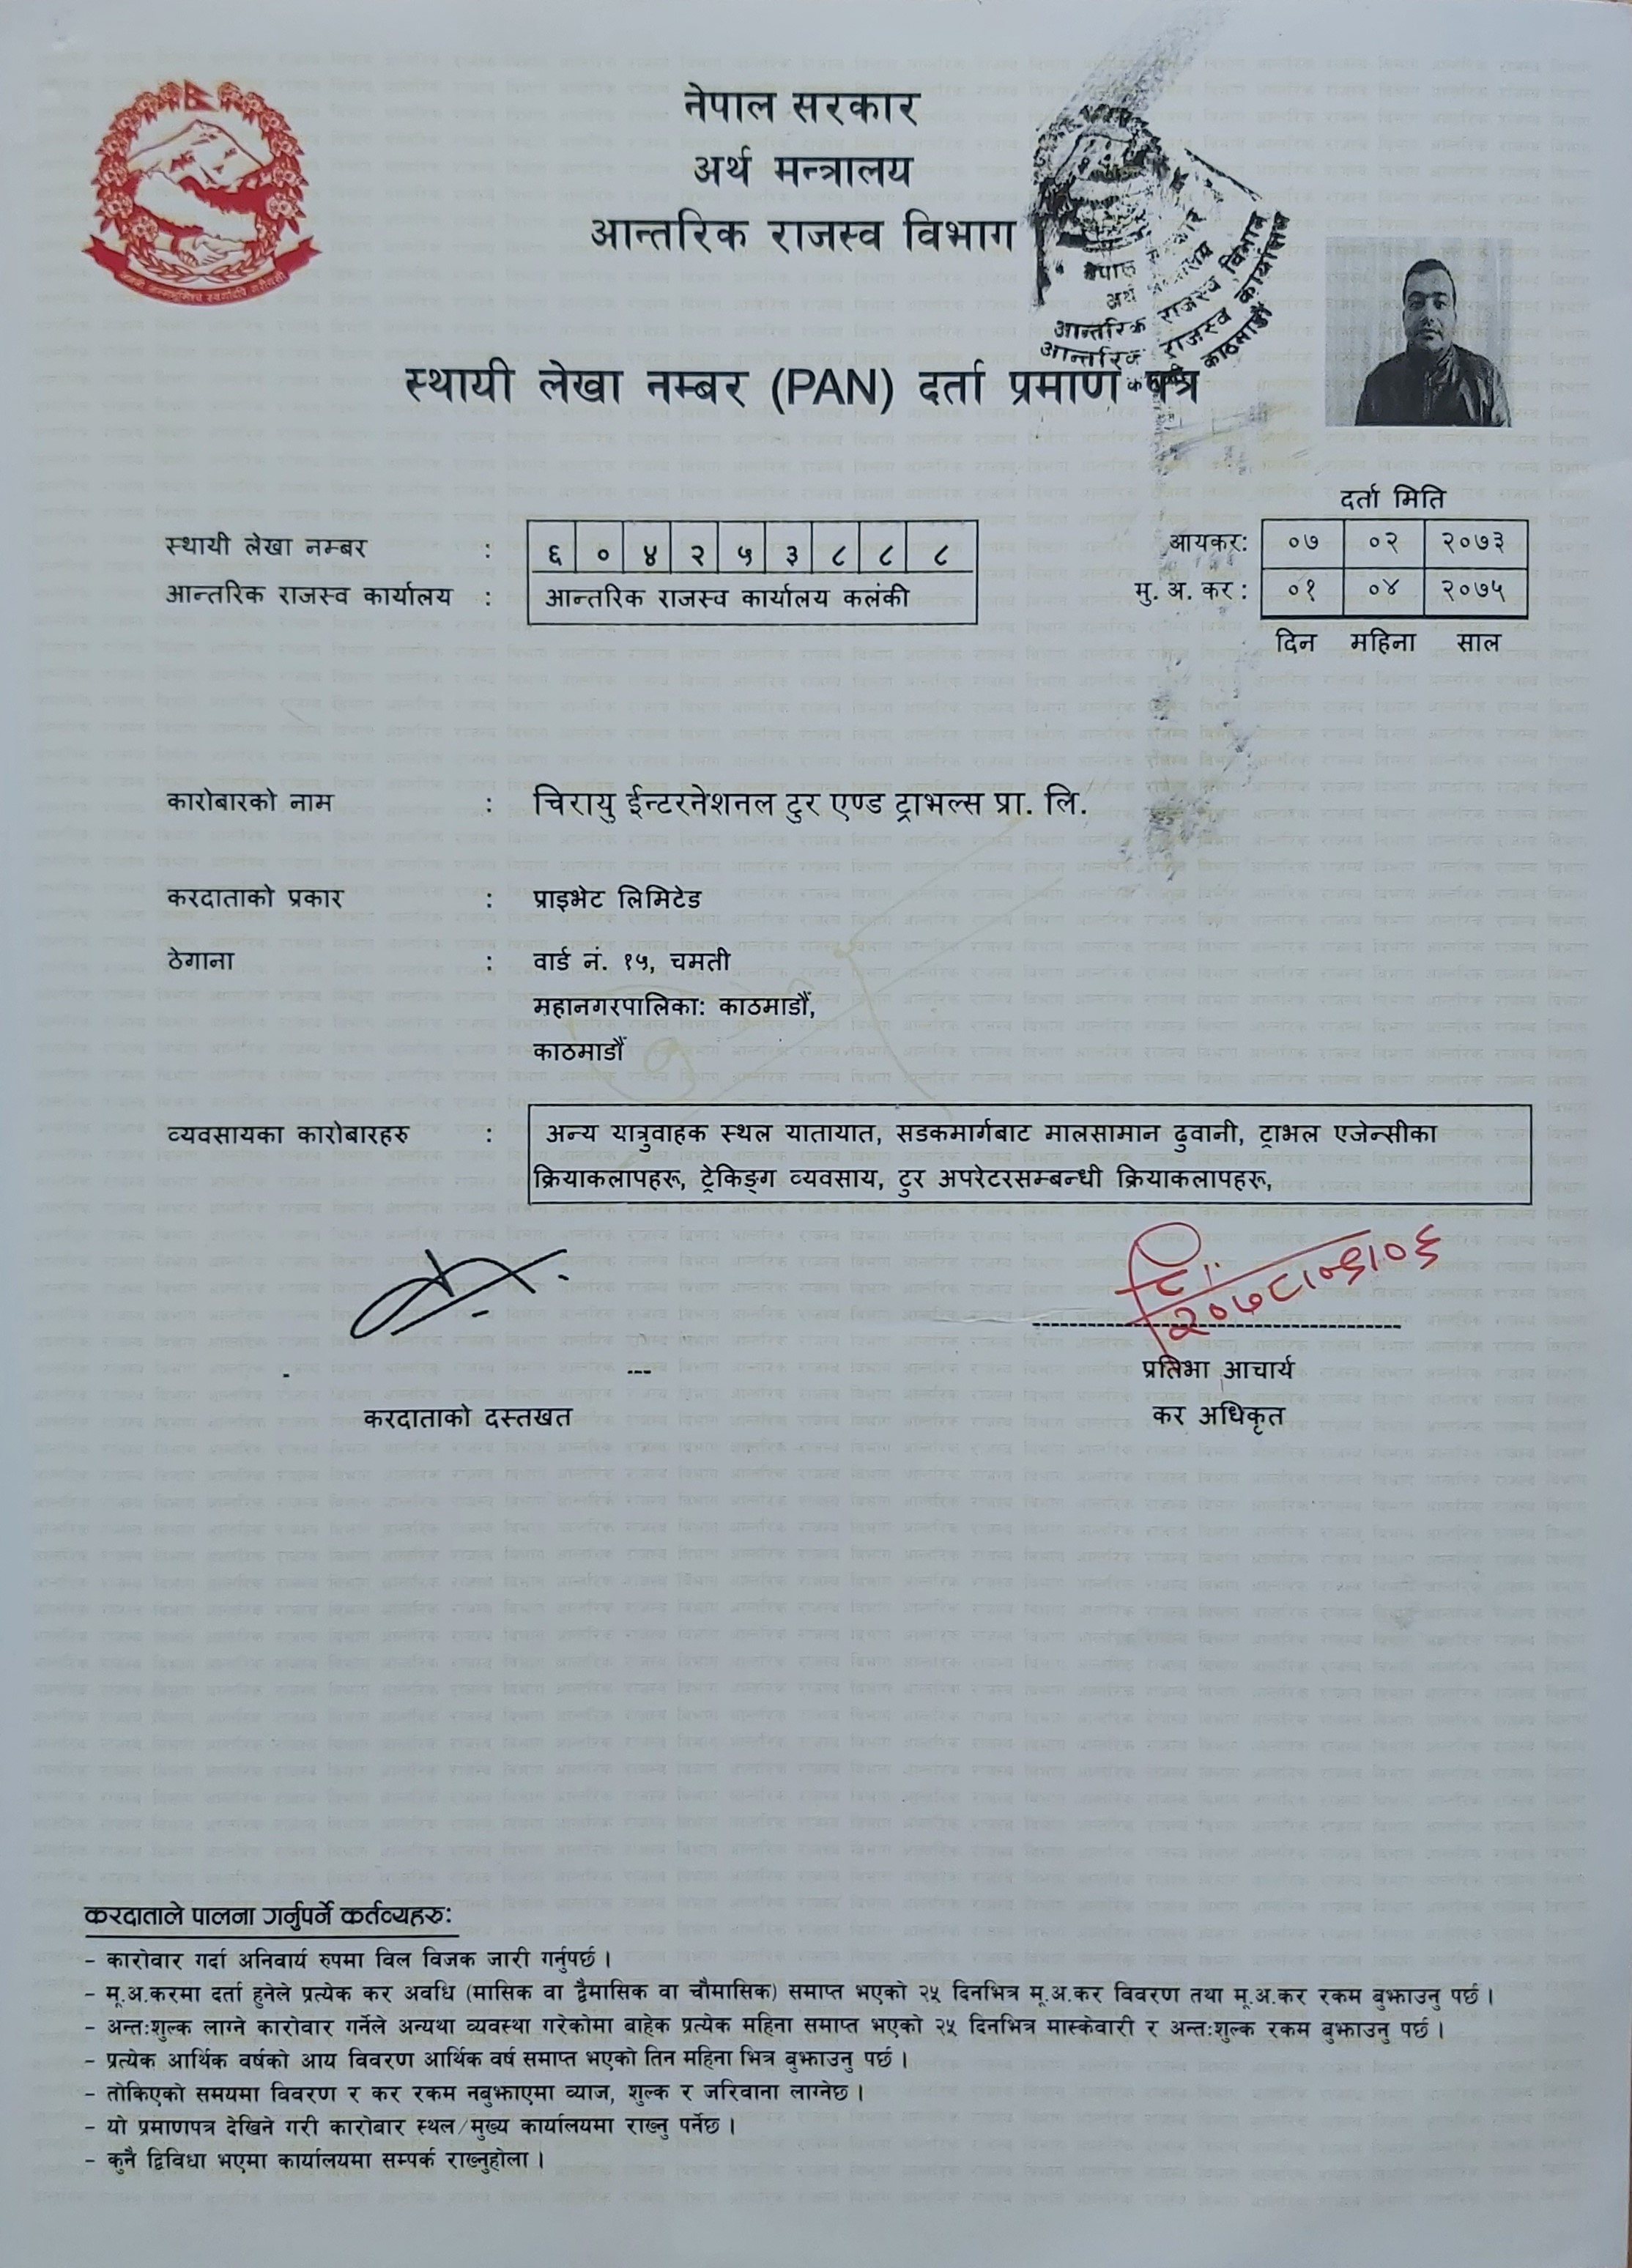 नेपाल सरकार
अर्थ मन्त्रालय
आन्तरिक राजस्व विभाग
नेपाल
आन्तरिक राजस्व विभाग
आन्तरिक राजस्व कार्यालय
काठमाडौं
स्थायी लेखा नम्बर (PAN) दर्ता प्रमाण पत्र
दर्ता मिति
स्थायी लेखा नम्बर : ६ ० ४ २ ५ ३ ८ ८ ८ आयकर: ०७ ०२ २०७३
आन्तरिक राजस्व कार्यालय : आन्तरिक राजस्व कार्यालय कलंकी मु. अ. कर : ०१ ०४ २०७५
दिन महिना साल
कारोबारको नाम : चिरायु ईन्टरनेशनल टुर एण्ड ट्राभल्स प्रा. लि.
करदाताको प्रकार : प्राइभेट लिमिटेड
ठेगाना : वार्ड नं. १५, चमती
महानगरपालिका: काठमाडौं,
काठमाडौं
व्यवसायका कारोबारहरु : अन्य यात्रुवाहक स्थल यातायात, सडकमार्गबाट मालसामान ढुवानी, ट्राभल एजेन्सीका
क्रियाकलापहरू, ट्रेकिङ्ग व्यवसाय, टुर अपरेटरसम्बन्धी क्रियाकलापहरू,
---
प्रतिभा आचार्य
करदाताको दस्तखत कर अधिकृत
करदाताले पालना गर्नुपर्ने कर्तव्यहरु:
- कारोवार गर्दा अनिवार्य रुपमा विल विजक जारी गर्नुपर्छ ।
- मू.अ.करमा दर्ता हुनेले प्रत्येक कर अवधि (मासिक वा द्वैमासिक वा चौमासिक) समाप्त भएको २५ दिनभित्र मू.अ.कर विवरण तथा मू.अ.कर रकम बुझाउनु पर्छ ।
- अन्तःशुल्क लाग्ने कारोवार गर्नेले अन्यथा व्यवस्था गरेकोमा बाहेक प्रत्येक महिना समाप्त भएको २५ दिनभित्र मास्केवारी र अन्तःशुल्क रकम बुझाउनु पर्छ ।
- प्रत्येक आर्थिक वर्षको आय विवरण आर्थिक वर्ष समाप्त भएको तिन महिना भित्र बुझाउनु पर्छ ।
- तोकिएको समयमा विवरण र कर रकम नबुझाएमा व्याज, शुल्क र जरिवाना लाग्नेछ ।
- यो प्रमाणपत्र देखिने गरी कारोबार स्थल/मुख्य कार्यालयमा राख्नु पर्नेछ ।
- कुनै द्विविधा भएमा कार्यालयमा सम्पर्क राख्नुहोला ।